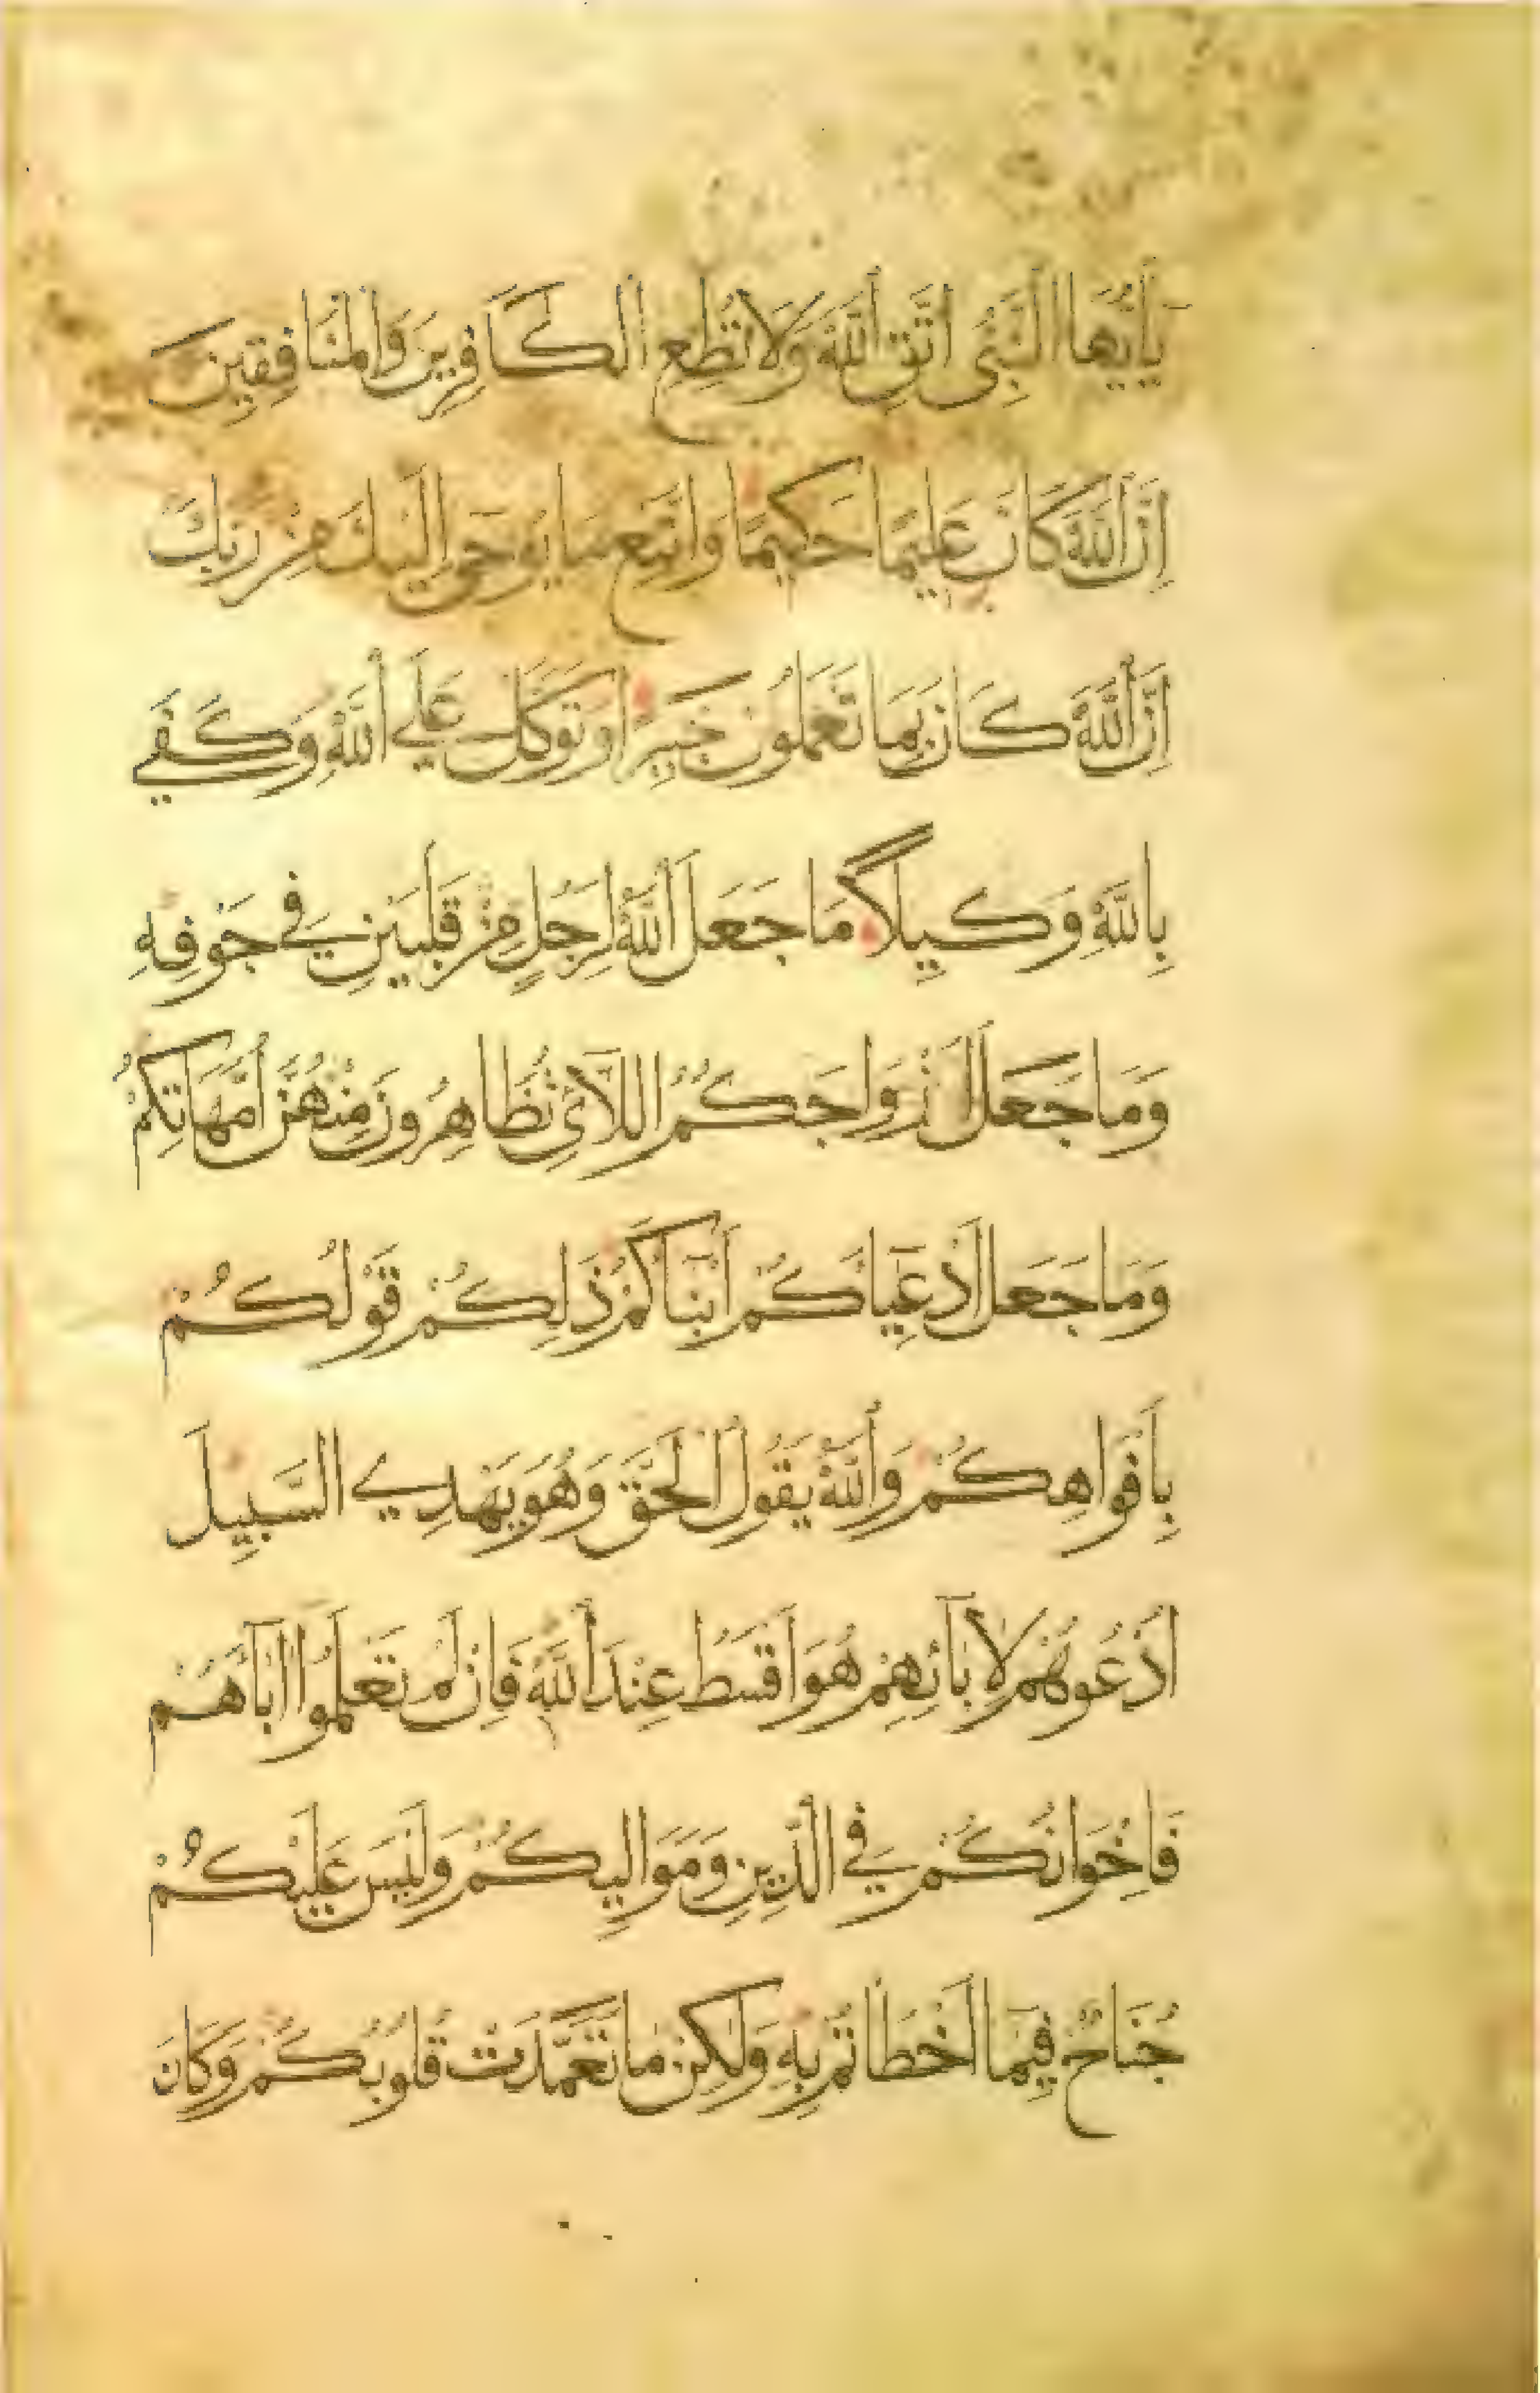 يَاأَيُّهَا النَّبِيُّ اتَّقِ اللَّهَ وَلَا تُطِعِ الْكَافِرِينَ وَالْمُنَافِقِينَ
إِنَّ اللَّهَ كَانَ عَلِيمًا حَكِيمًا وَاتَّبِعْ مَا يُوحَى إِلَيْكَ مِنْ رَبِّكَ
إِنَّ اللَّهَ كَانَ بِمَا تَعْمَلُونَ خَبِيرًا وَتَوَكَّلْ عَلَى اللَّهِ وَكَفَى
بِاللَّهِ وَكِيلًا مَا جَعَلَ اللَّهُ لِرَجُلٍ مِنْ قَلْبَيْنِ فِي جَوْفِهِ
وَمَا جَعَلَ أَزْوَاجَكُمُ اللَّائِي تُظَاهِرُونَ مِنْهُنَّ أُمَّهَاتِكُمْ
وَمَا جَعَلَ أَدْعِيَاكُمْ أَبْنَاكُمْ ذَلِكُمْ قَوْلُكُمْ
بِأَفْوَاهِكُمْ وَاللَّهُ يَقُولُ الْحَقَّ وَهُوَ يَهْدِي السَّبِيلَ
ادْعُوهُمْ لِآبَائِهِمْ هُوَ أَقْسَطُ عِنْدَ اللَّهِ فَإِنْ لَمْ تَعْلَمُوا آبَاهُمْ
فَإِخْوَانُكُمْ فِي الدِّينِ وَمَوَالِيكُمْ وَلَيْسَ عَلَيْكُمْ
جُنَاحٌ فِيمَا أَخْطَأْتُمْ بِهِ وَلَكِنْ مَا تَعَمَّدَتْ قُلُوبُكُمْ وَكَانَ